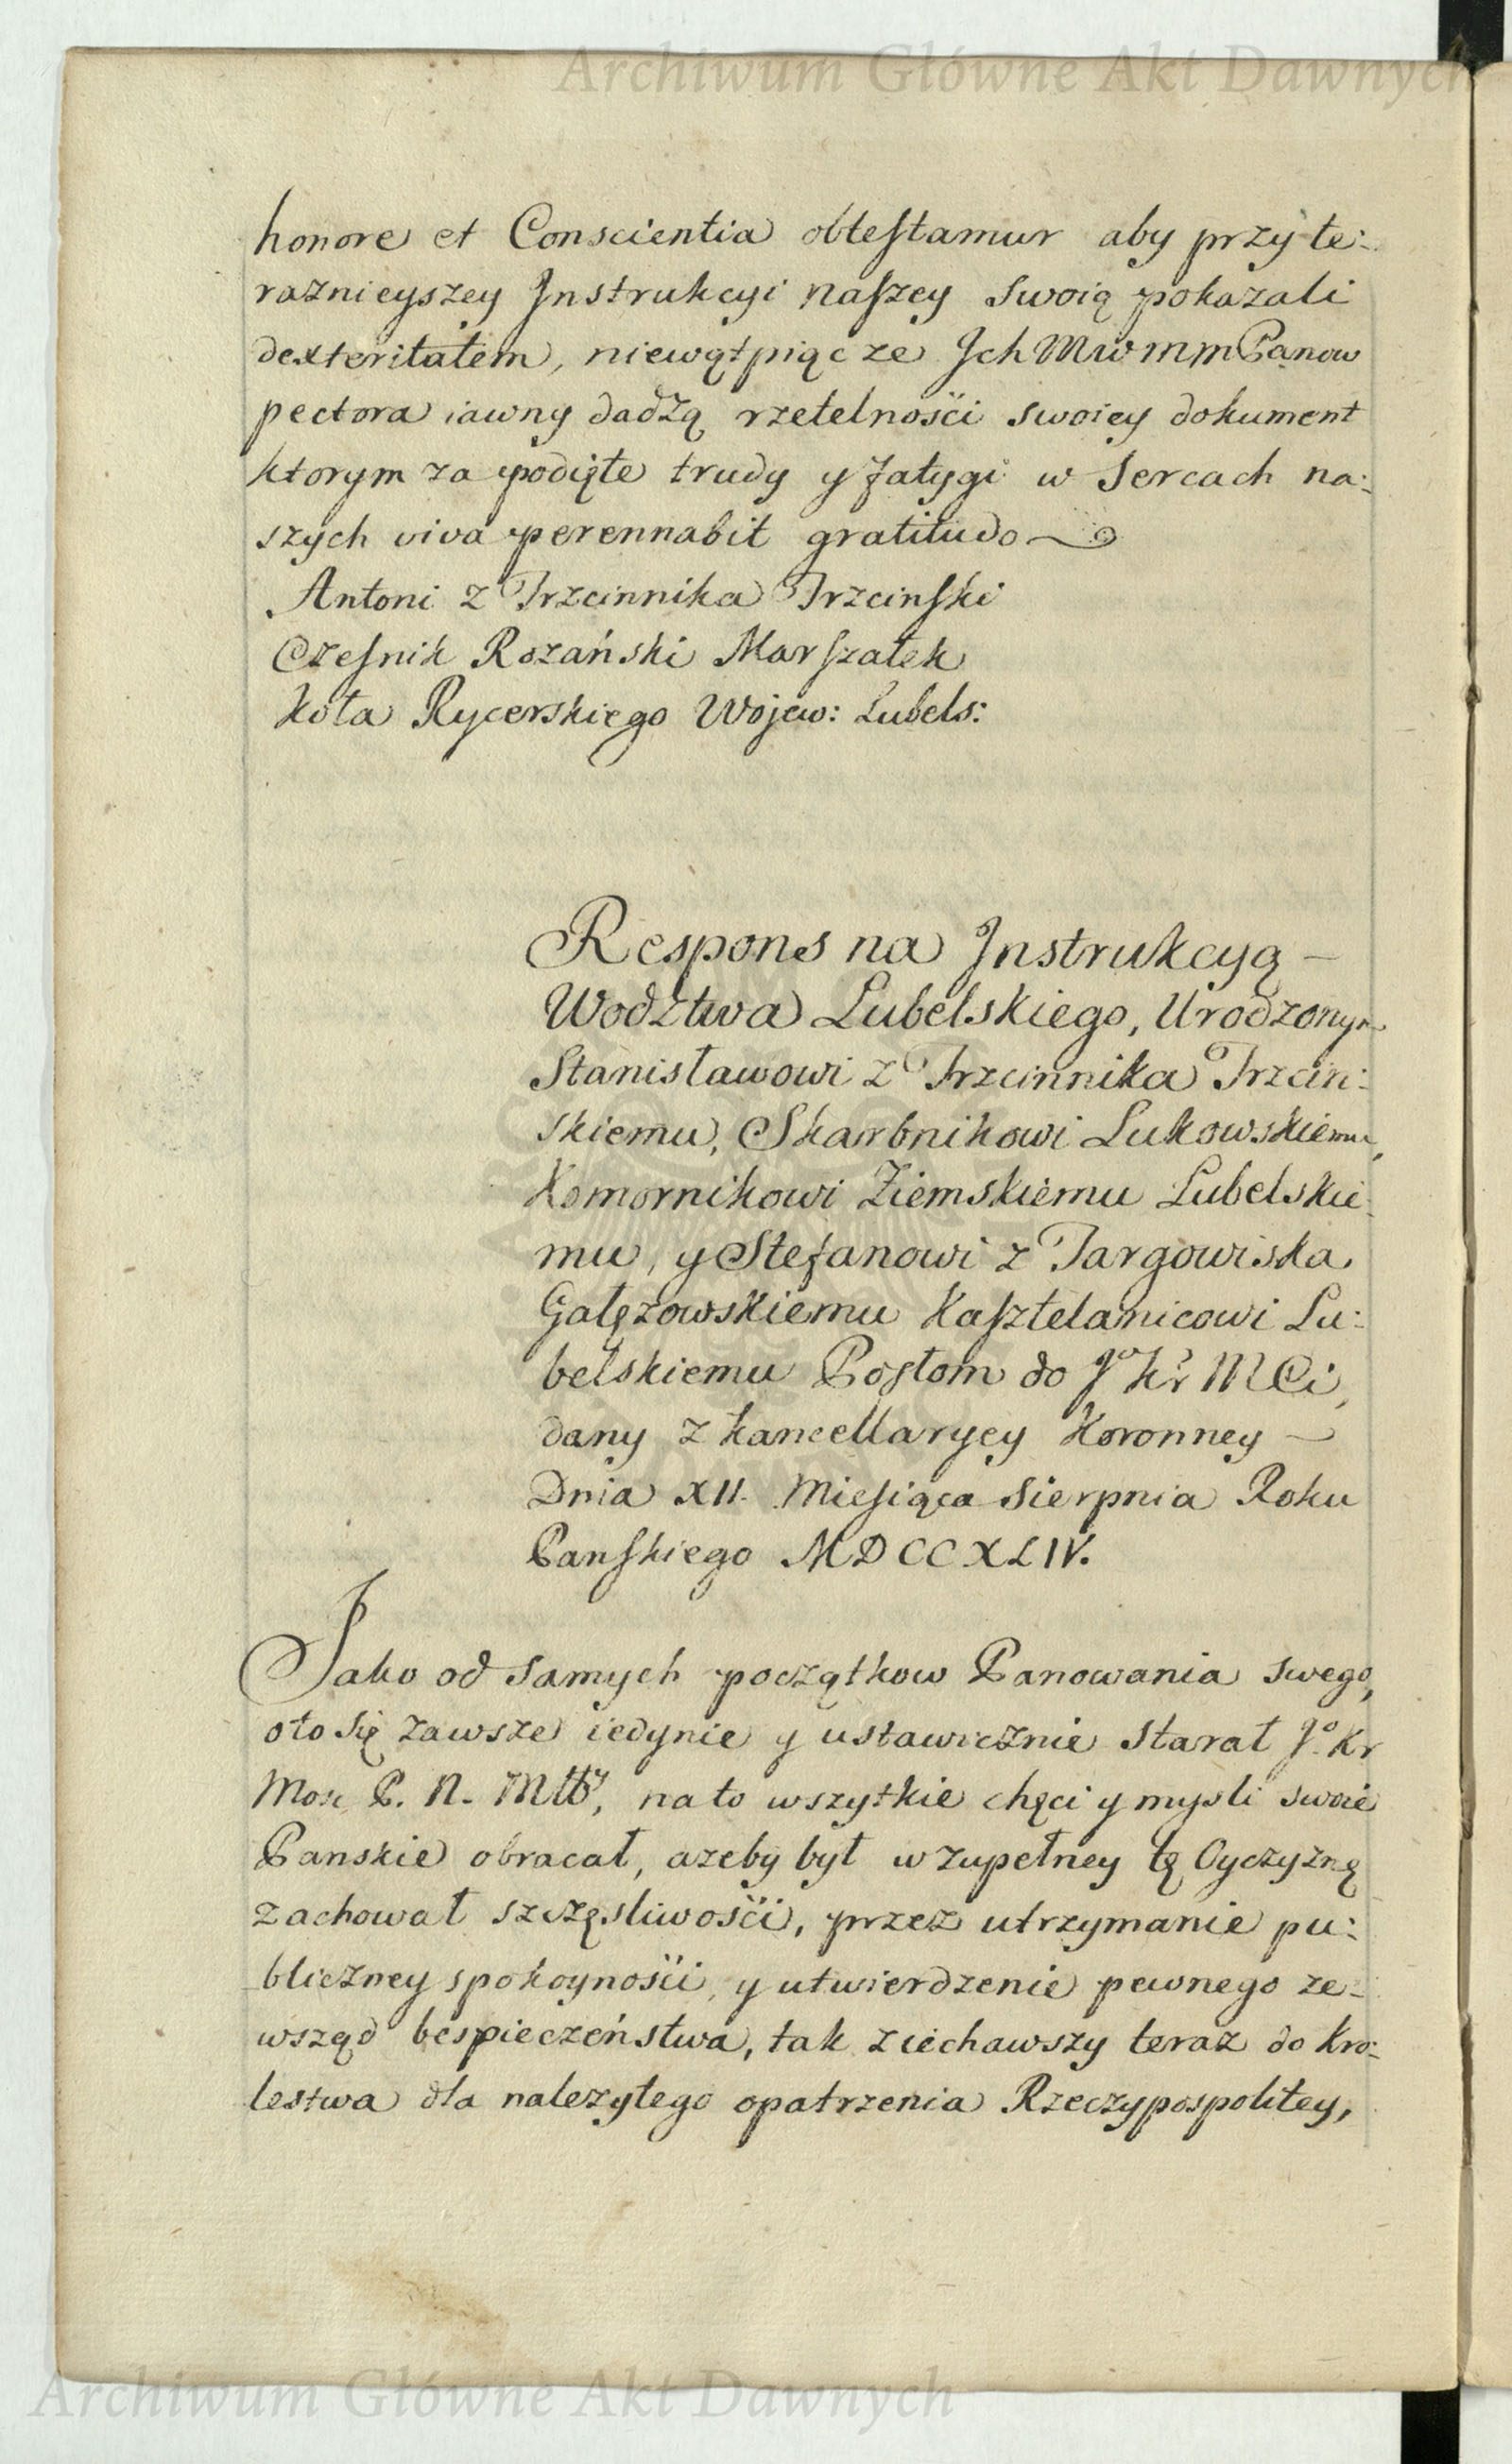 Archiwum Główne Akt Dawnych
honore et Conscientia obtestamur aby przy te:
raznieyszey Jnstrukcyi naszey Swoią pokazali
dexteritatem, niewątpiąc ze Jch Mw mm Panow
pectora iawny dadzą rzetelności swoiey dokument
ktorym za podięte trudy y fatygi w Sercach na:
szych viva perennabit gratitudo
Antoni z Trzcinnika Trzcinski
Czesnik Rozański Marszałek
koła Rycerskiego Wojew: Lubels:
Respons na Jnstrukcyą –
Wodztwa Lubelskiego, Urodzonym
Stanisławowi z Trzcinnika Trzcin:
skiemu, Skarbnikowi Lukowskiemu,
Komornikowi Ziemskiemu Lubelskie:
mu, y Stefanowi z Targowiska
Gałęzowskiemu Kasztelanicowi Lu:
belskiemu Posłom do Jo Kr MCi,
dany z kancellaryey Koronney –
Dnia XII. Miesiąca Sierpnia Roku
Panskiego MDCCXLIV.
Jako od samych początkow Panowania swego,
oto się zawsze iedynie y ustawicznie starał Jo Kr
Mość P. N. Młły, na to wszytkie chęci y mysli swoie
Panskie obracał, azeby był w zupełney tę Oyczyznę
zachował szczęsliwości, przez utrzymanie pu:
bliczney spokoyności, y utwierdzenie pewnego ze:
wsząd bespieczeństwa, tak ziechawszy teraz do Kro:
lestwa dla nalezytego opatrzenia Rzeczypospolitey,
Archiwum Główne Akt Dawnych